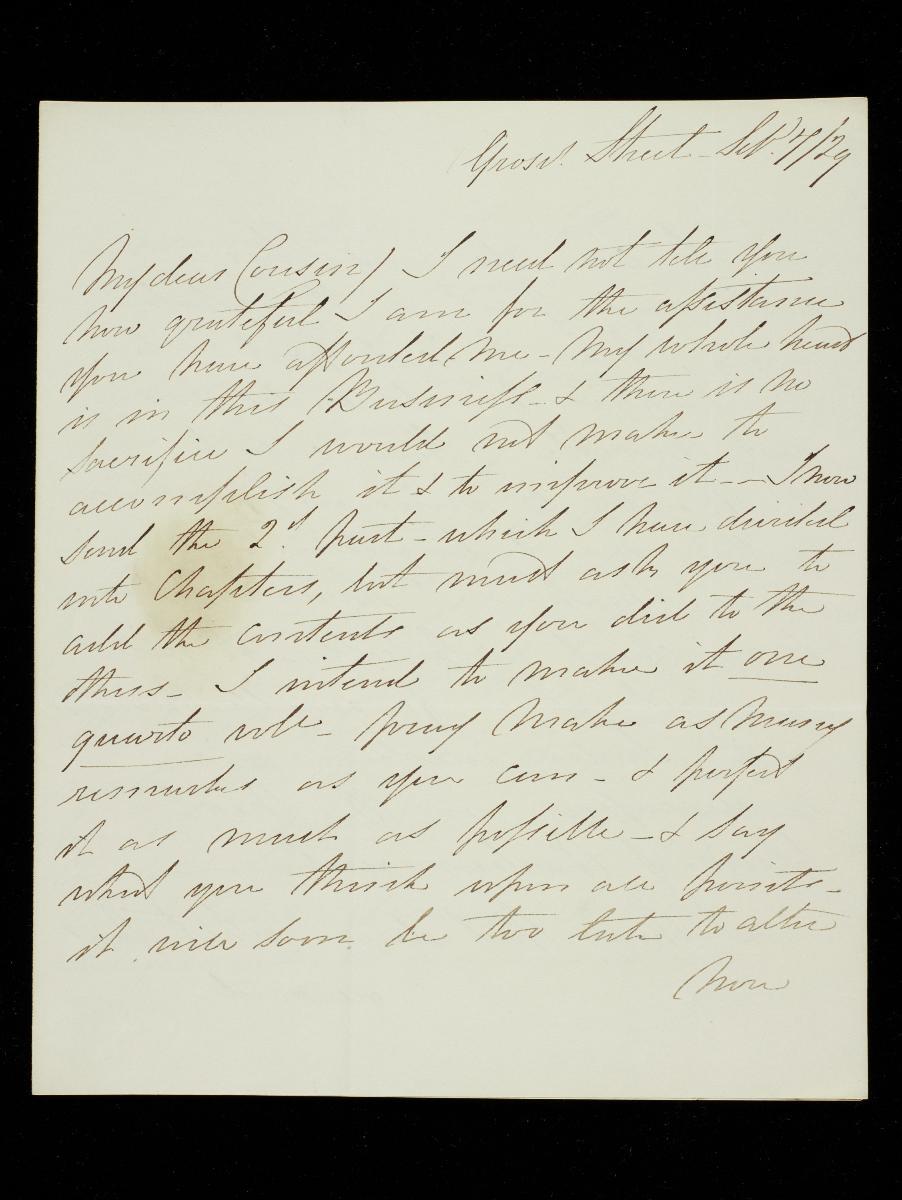 Grosr. Street - Sepr. 7/29
My dear Cousin / I need not tell you
how grateful I am for the assistance
you have afforded me - My whole heart
is in this Business - & there is no
sacrifice I would not make to
accomplish it & to improve it -- I now
send the 2d. part - which I have divided
into Chapters, but must ask you to
add the contents as you did to the
others - I intend to make it one
quarto vol - pray make as many
remarks as you can - & perfect
it as much as possible - & say
what you think upon all points -
it will soon be too late to alter
Now